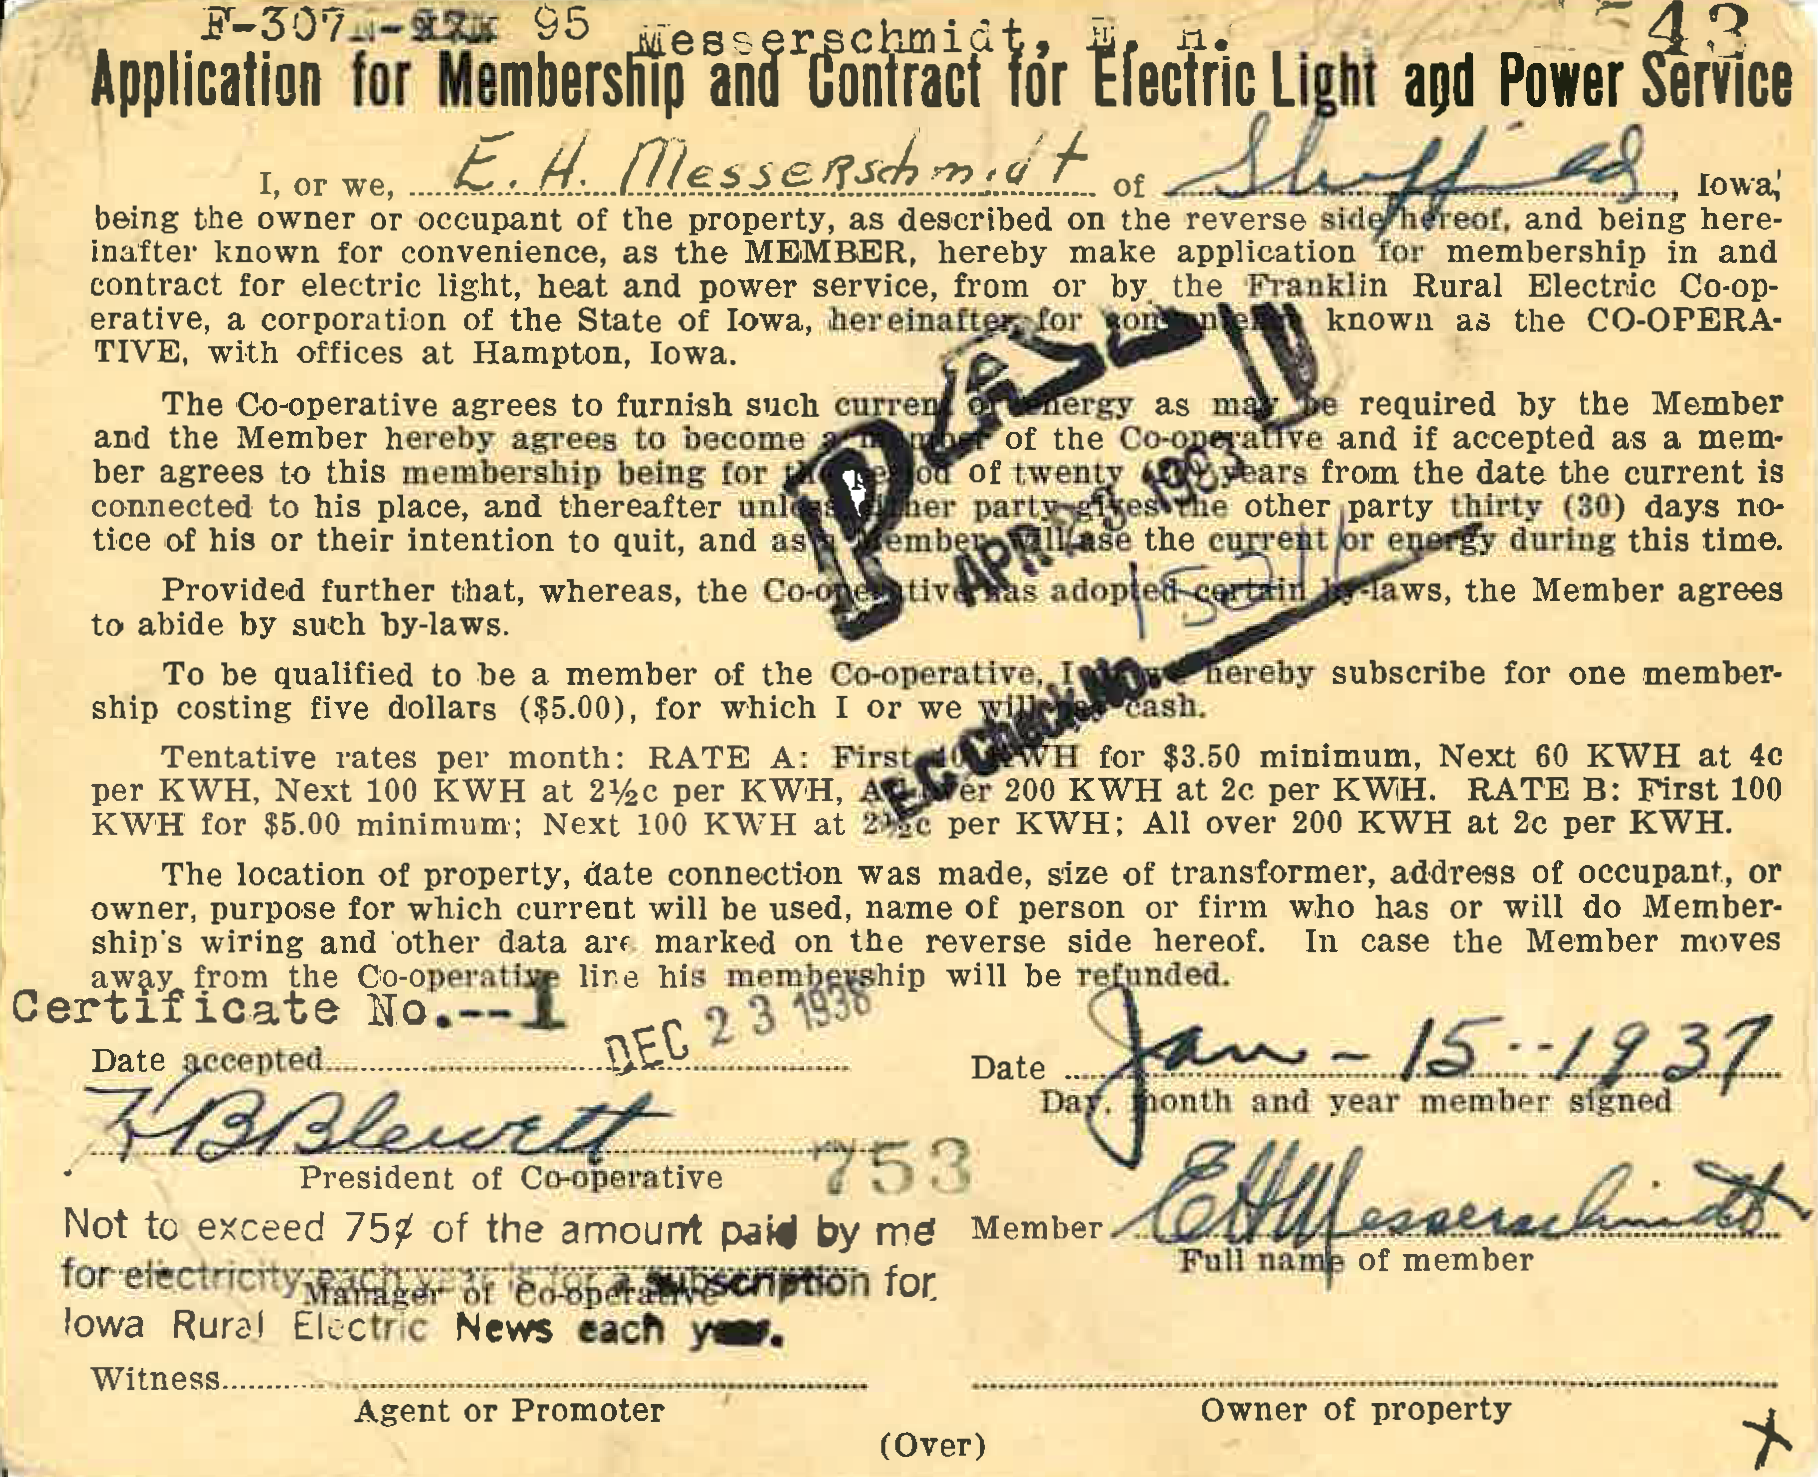 F-307 95 Messerschmidt, E. H. 43
Application for Membership and Contract for Electric Light and Power Service
I, or we, E. H. Messerschmidt of Sheffield, Iowa,
being the owner or occupant of the property, as described on the reverse side hereof, and being here-
inafter known for convenience, as the MEMBER, hereby make application for membership in and
contract for electric light, heat and power service, from or by the Franklin Rural Electric Co-op-
erative, a corporation of the State of Iowa, hereinafter, for convenience known as the CO-OPERA-
TIVE, with offices at Hampton, Iowa.
The Co-operative agrees to furnish such current or energy as may be required by the Member
and the Member hereby agrees to become a member of the Co-operative and if accepted as a mem-
ber agrees to this membership being for the period of twenty years from the date the current is
connected to his place, and thereafter unless either party gives the other party thirty (30) days no-
tice of his or their intention to quit, and as a Member will use the current or energy during this time.
Provided further that, whereas, the Co-operative has adopted certain by-laws, the Member agrees
to abide by such by-laws.
To be qualified to be a member of the Co-operative, I or we hereby subscribe for one member-
ship costing five dollars ($5.00), for which I or we will pay cash.
Tentative rates per month: RATE A: First 40 KWH for $3.50 minimum, Next 60 KWH at 4c
per KWH, Next 100 KWH at 2½c per KWH, All over 200 KWH at 2c per KWH. RATE B: First 100
KWH for $5.00 minimum; Next 100 KWH at 2½c per KWH; All over 200 KWH at 2c per KWH.
PAID
APR 1983
REC Check NO.
The location of property, date connection was made, size of transformer, address of occupant, or
owner, purpose for which current will be used, name of person or firm who has or will do Member-
ship's wiring and other data are marked on the reverse side hereof. In case the Member moves
away from the Co-operative line his membership will be refunded.
Certificate No.--1
Date accepted DEC 23 1938
Date Jan - 15 -- 1937
Day, month and year member signed
B Blewett
President of Co-operative
753
Member E H Messerschmidt
Full name of member
Not to exceed 75¢ of the amount paid by me
for electricity each year is for a subscription for
Manager of Co-operative
Iowa Rural Electric News each year.
Witness
Agent or Promoter
Owner of property
(Over)
X